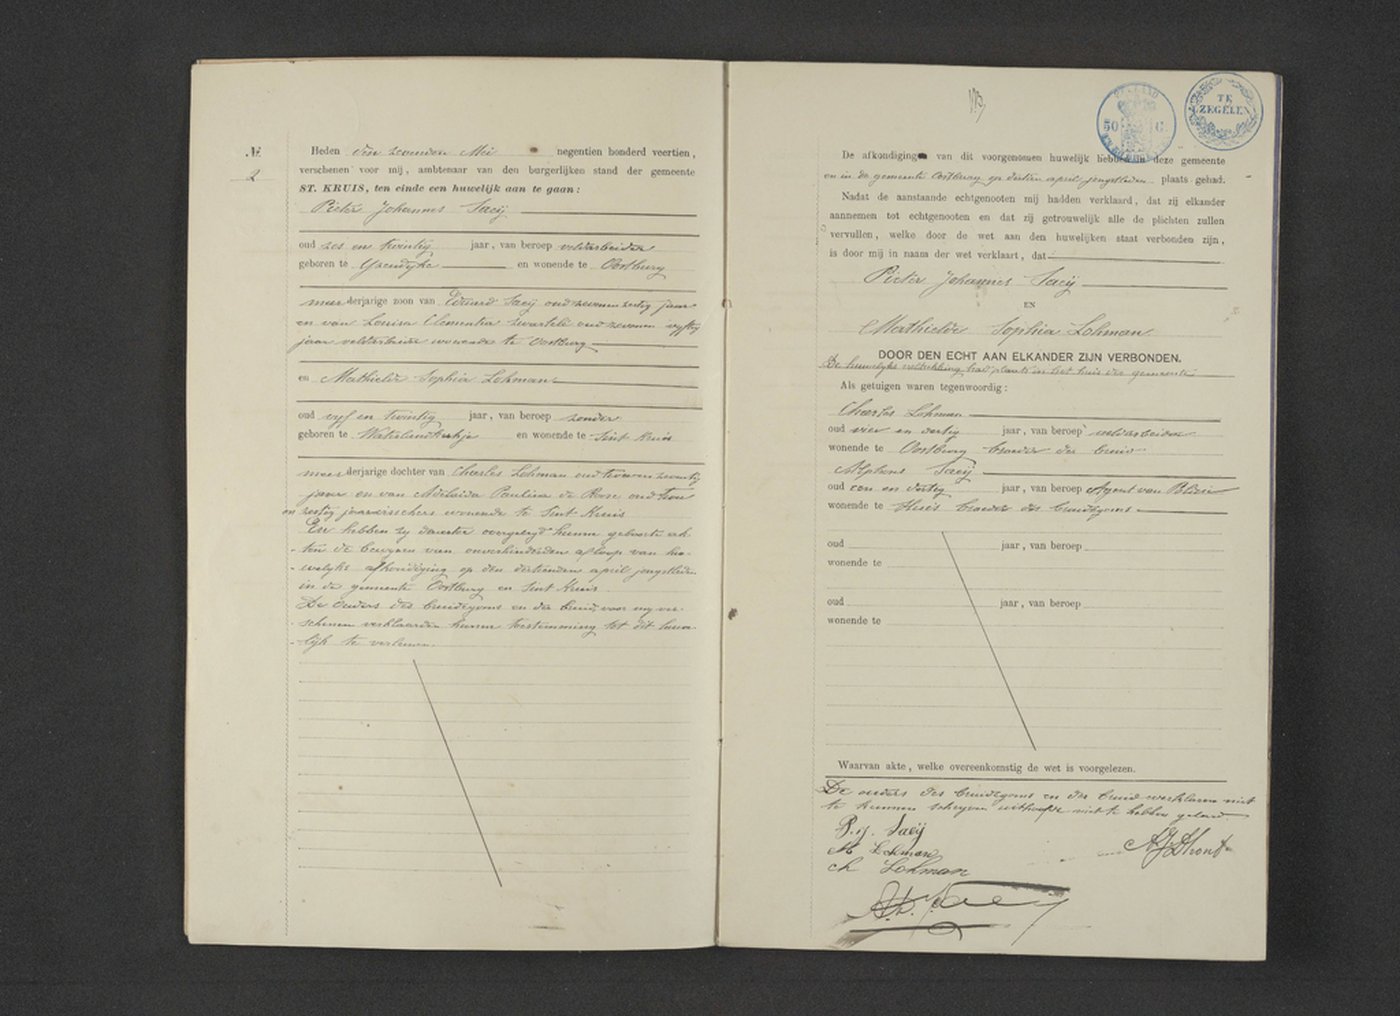 №
2
Heden den zevenden Mei negentien honderd veertien,
verschenen voor mij, ambtenaar van den burgerlijken stand der gemeente
ST. KRUIS, ten einde een huwelijk aan te gaan:
Pieter Johannes Saeij
oud zes en twintig jaar, van beroep veldarbeider
geboren te Yzendyke en wonende te Oostburg
meerderjarige zoon van Eduard Saeij oud zevenenzestig jaar
en van Louisa Clementia oud zevenen vyftig
jaar veldarbeider wonende te Oostburg
en Mathielde Sophia Lohman
oud vyf en twintig jaar, van beroep zonder
geboren te Waterlandkerkje en wonende te Sint Kruis
meerderjarige dochter van Charles Lohman oud tweeenzeventig
jaar en van Adelaida Paulina de Roose oud
en zestig jaar wonende te Sint Kruis
En hebben zy daartoe overgelegd hunne geboorte ak-
ten de bewyzen van onverhinderden afloop van hu-
welyks afkondiging op den dertienden april jongstleden
in de gemeente Oostburg en Sint Kruis
De ouders des bruidegoms en der bruid, voor my ver-
schenen verklaarden hunne toestemming tot dit huwe-
lijk te verleenen
50 C.
TE
ZEGELEN
De afkondigingen van dit voorgenomen huwelijk hebben in deze gemeente
en in de gemeente Oostburg op dertien april jongstleden plaats gehad.
Nadat de aanstaande echtgenooten mij hadden verklaard, dat zij elkander
aannemen tot echtgenooten en dat zij getrouwelijk alle de plichten zullen
vervullen, welke door de wet aan den huwelijken staat verbonden zijn,
is door mij in naam der wet verklaart, dat
Pieter Johannes Saeij
EN
Mathielde Sophia Lohman
DOOR DEN ECHT AAN ELKANDER ZIJN VERBONDEN.
De huwelyks voltrekking had plaats in het huis der gemeente
Als getuigen waren tegenwoordig:
Charles Lohman
oud vier en dertig jaar, van beroep veldarbeider
wonende te Oostburg broeder der bruid
Alphons Saeij
oud een en dertig jaar, van beroep Agent van Politie
wonende te Sluis broeder des bruidegoms
oud jaar, van beroep
wonende te
oud jaar, van beroep
wonende te
Waarvan akte, welke overeenkomstig de wet is voorgelezen.
De ouders des bruidegoms en der bruid verklaren niet
te kunnen schryven uithoofde niet te hebben geleerd
P. J. Saeij
M Lohman
AJ Dhont
Ch Lohman